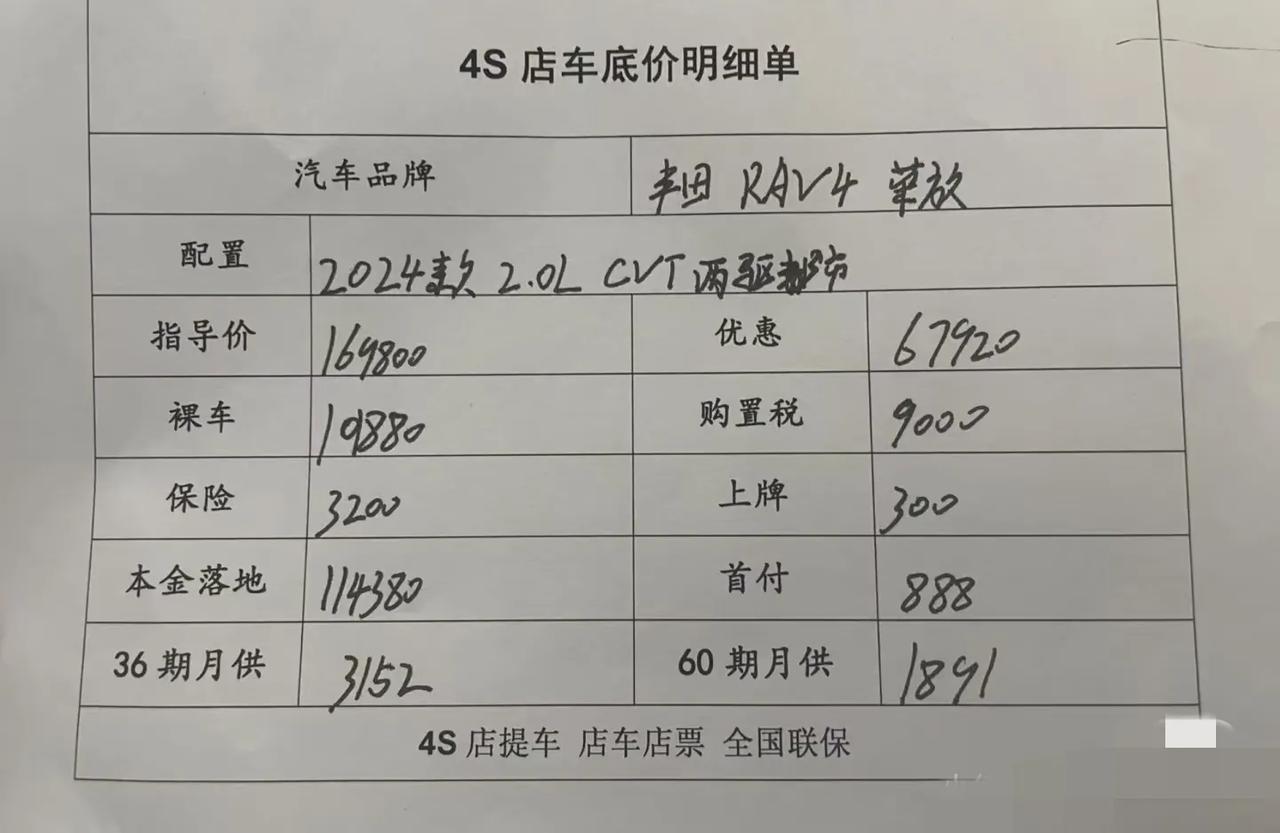 4S 店车底价明细单
汽车品牌 丰田 RAV4 荣放
配置 2024款 2.0L CVT 两驱都市
指导价 169800 优惠 67920
裸车 101880 购置税 9000
保险 3200 上牌 300
本金落地 114380 首付 888
36 期月供 3152 60 期月供 1891
4S 店提车 店车店票 全国联保